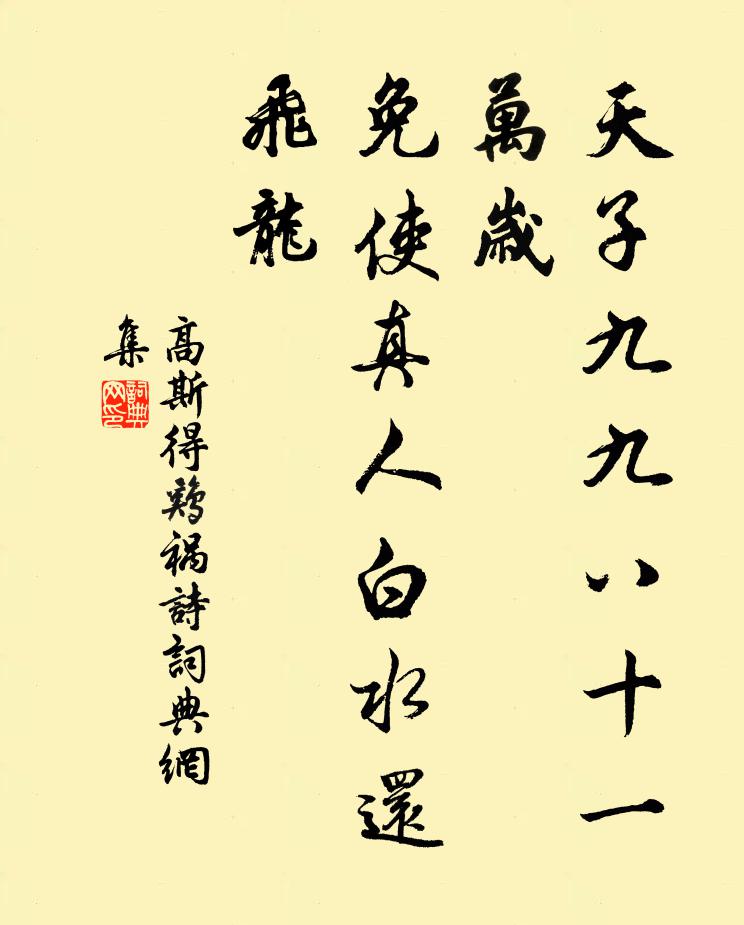 天子九九八十一
萬歲
免使真人白水還
飛龍
高斯得鷄禍詩詞典網
集
詞典網印